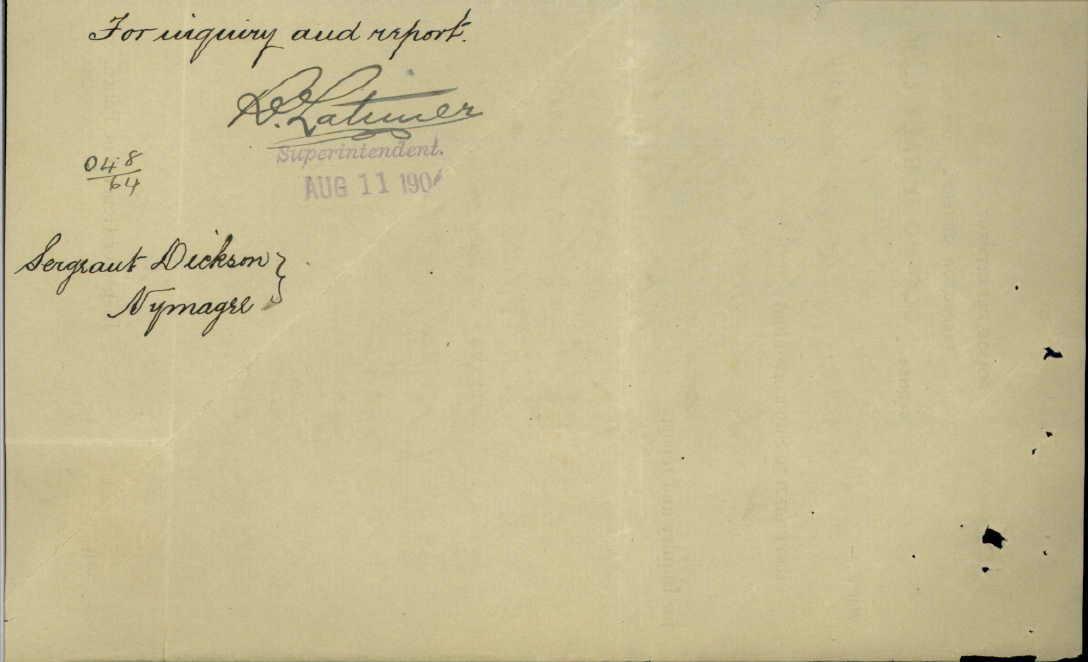 For inquiry and report.
D. Latimer
Superintendent.
AUG 11 190
04.8
64
Sergeant Dickson }
Nymagee